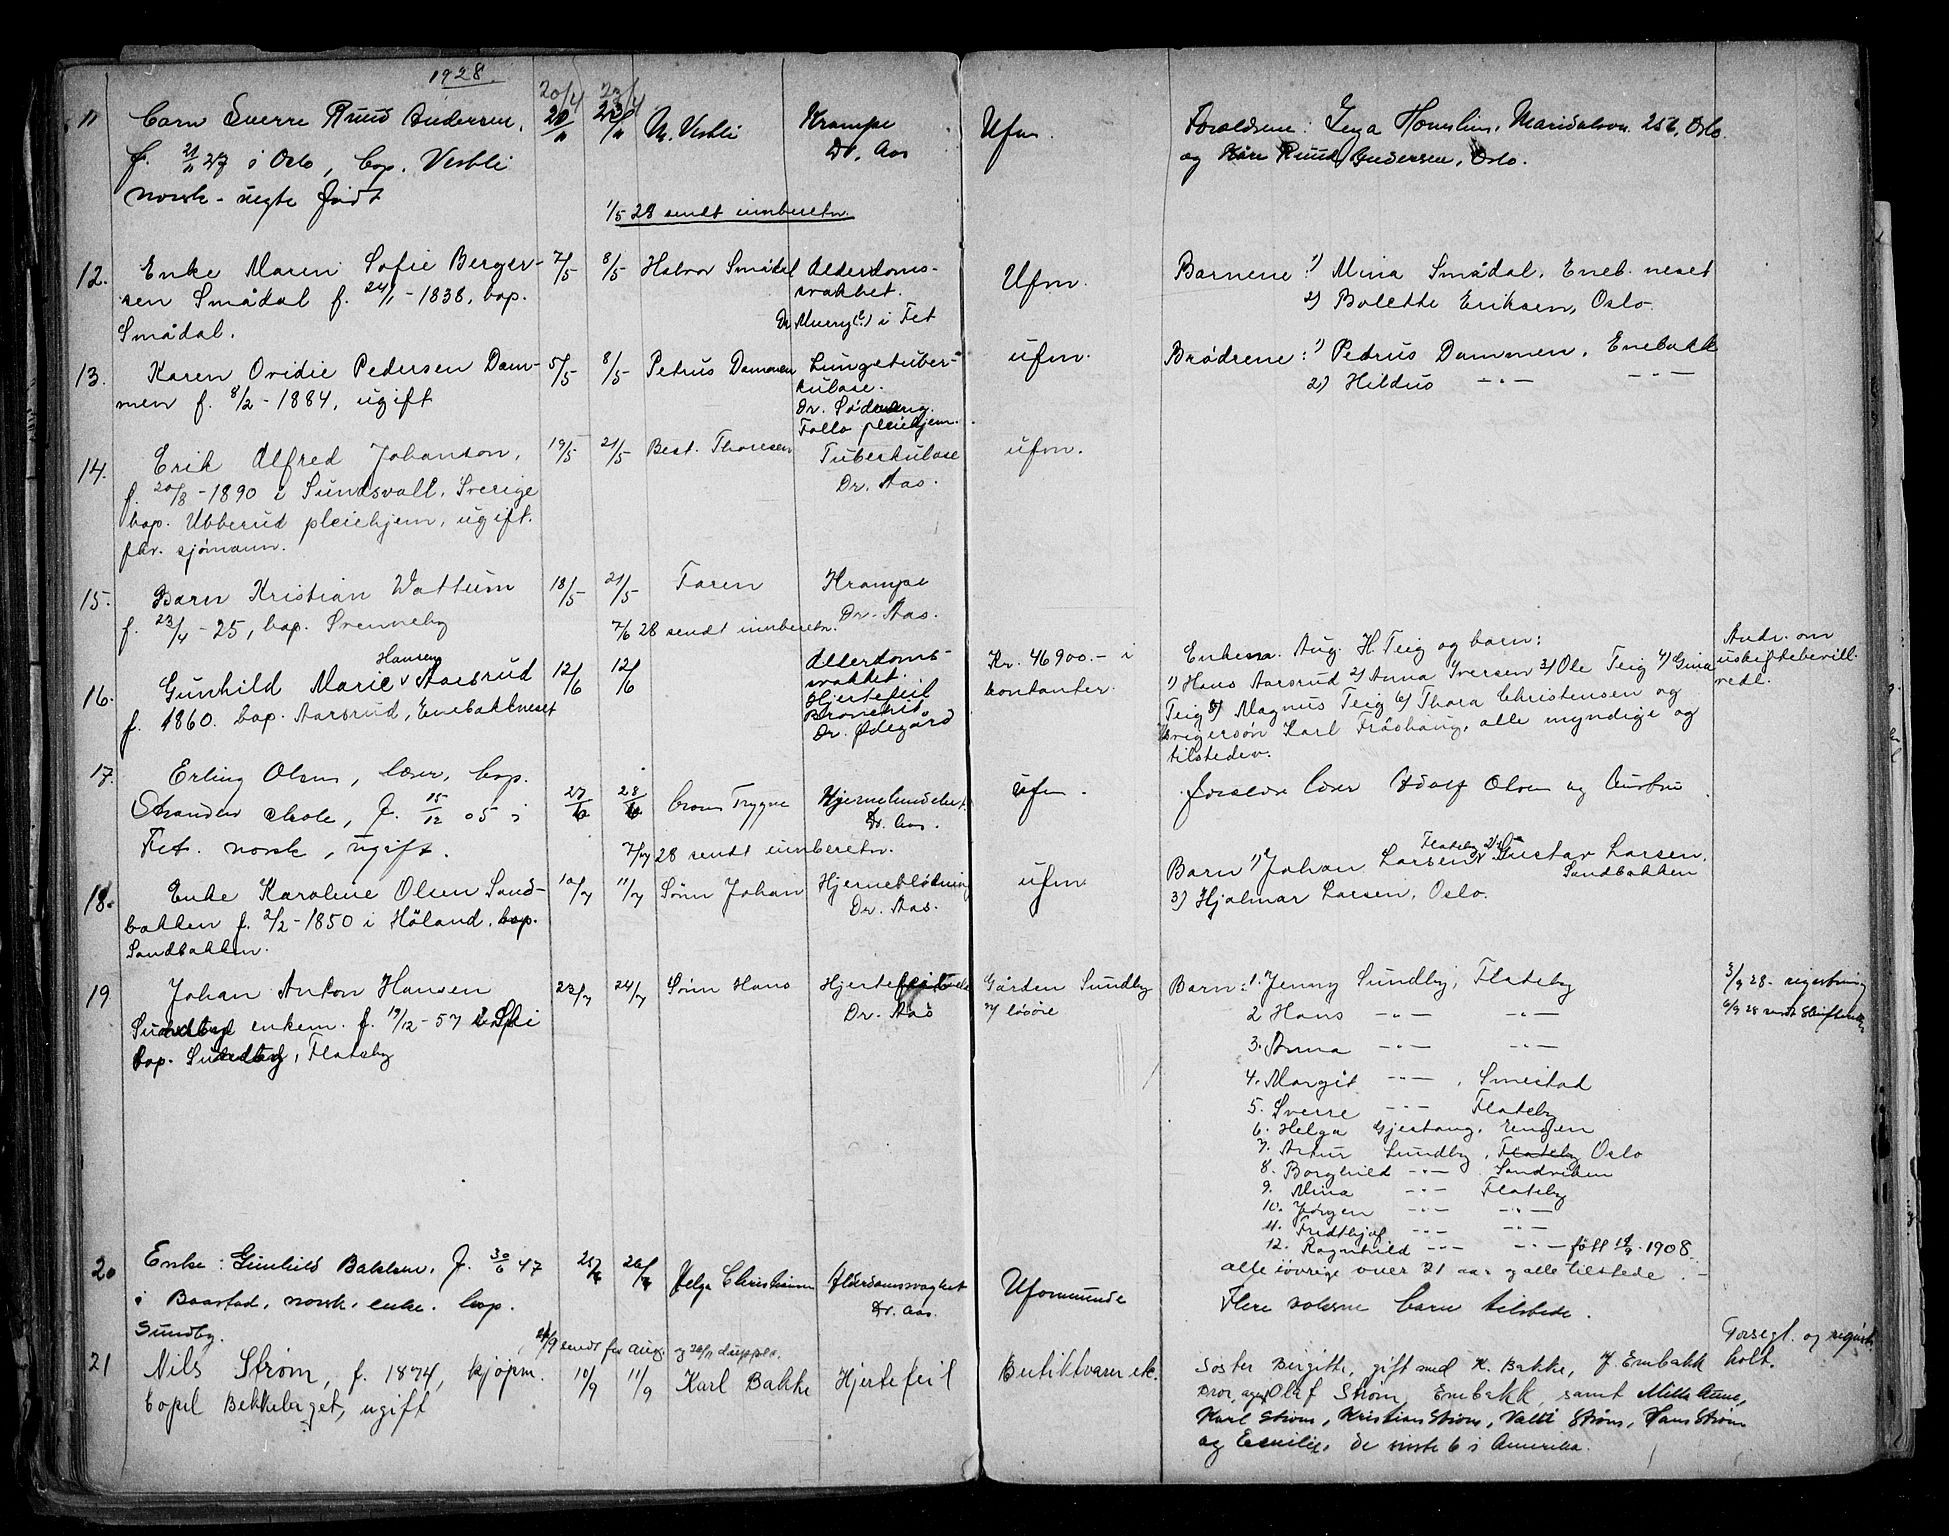 1928
11 Barn Sverre Ruud Andersen, 20/4 23/4 N. Vestli Krampe Ufm. Foreldrene: Inga Maridalsvn. 252, Oslo.
f. 21/11 27 i Oslo, bop. Vestli Dr. Aas og Kåre Ruud Andersen, Oslo.
norsk - uegte født
1/5 28 sendt innberetn.
12. Enke Maren Sofie Berger- 7/5 8/5 Halvor Smådal Alderdoms- Ufm. Barnene: 1) Mina Smådal, Eneb. neset
sen Smådal f. 24/1 - 1838, bop. svakhet. 2) Bolette Eriksen, Oslo
Smådal. Dr. i Fet
13. Karen Ovidie Pedersen Dam- 5/5 8/5 Petrus Dammen Lungetuber- ufm. Brødrene: 1) Petrus Dammen, Enebakk
men f. 8/2 - 1884, ugift kulose. 2) Hildus -"- -"-
Dr. Sødring.
Follo pleiehjem.
14. Erik Alfred Johanson, 19/5 21/5 Best. Thoresen Tuberkulose ufm.
f. 20/8 - 1890 i Sundsvall, Sverige Dr. Aas.
bop. Ubberud pleiehjem, ugift.
fhv. sjømann.
15. Barn Kristian Vattum 18/5 21/5 Faren Krampe
f. 23/4 - 25, bop. Svenneby Dr. Aas.
7/6 28 sendt innberetn.
16. Gunhild Marie Hansen Aarsrud 12/6 12/6 Alderdoms- Kr. 46900.- i Enkem. Aug. H. Teig og barn: Andr. om
f. 1860. bop. Aarsrud, Enebakkneset svakhet. kontanter. 1) Hans Aarsrud 2) Anna Iversen 3) Ole Teig 4) Gina uskiftebevill.
Hjertefeil Teig 5) Magnus Teig 6) Thora Christensen og vedl.
Bronchit svigersøn Karl Fråshaug, alle myndige og
Dr. Ødegård tilstedev.
17. Erling Olsen, lærer, bop. 27/6 28/6 broren Trygve ufm. Foreldre lærer Adolf Olsen og
Stranden skole, f. 15/12 05 i Dr. Aas.
Fet. norsk, ugift. 7/7 28 sendt innberetn.
18. Enke Karoline Olsen Sand- 10/7 11/7 Sønn Johan Hjerneblødning ufm. Barn 1) Johan Larsen, Flateby 2) Gustav Larsen, Sandbakken
bakken f. 2/2 - 1850 i Höland, bop. Dr. Aas. 3) Hjalmar Larsen, Oslo.
Sandbakken.
19 Johan Anton Hansen 23/7 24/7 Sønn Hans Gården Sundby Barn: 1. Jenny Sundby, Flateby
Sundby enkem. f. 19/12 - 57 i Ski Dr. Aas m/ løsöre 2 Hans -"- -"-
bop. Sundby, Flateby 3. Anna -"- -"-
4. Margit -"-, Smestad
5. Sverre -"- Flateby
6. Helga Gjestang, Engen
7. Artur Sundby, Flateby Oslo
8. Borghild -"- Sandviken
9. Mina -"- Flateby
10. Jørgen -"- -"-
11. Fridthjof -"- -"-
12. Ragnhild -"- -"- født 1908
alle iøvrige over 21 aar og alle tilstede.
20 Enke: Gunhild Bakken. f. 30/6 47 Helga Christensen Alderdomsvaghet Ufommunde Flere voksne barn tilstede.
i Baastad, norsk, enke. bop. Dr. Aas.
Sundby.
sendt for aug.
21 Nils Strøm, f. 1874, kjøpm. 10/9 11/9 Karl Bakke Hjertefeil Butikkvarer etc. Søster Birgitte, gift med K. Bakke, Enebakk Forsegl. og registr.
bopel Bekkeberget, ugift Bror, Olaf Strøm, Enebakk, samt holt.
Karl Strøm, Kristian Strøm, Valti Strøm, Hans Strøm
og Emilie, de siste 6 i Amerika.